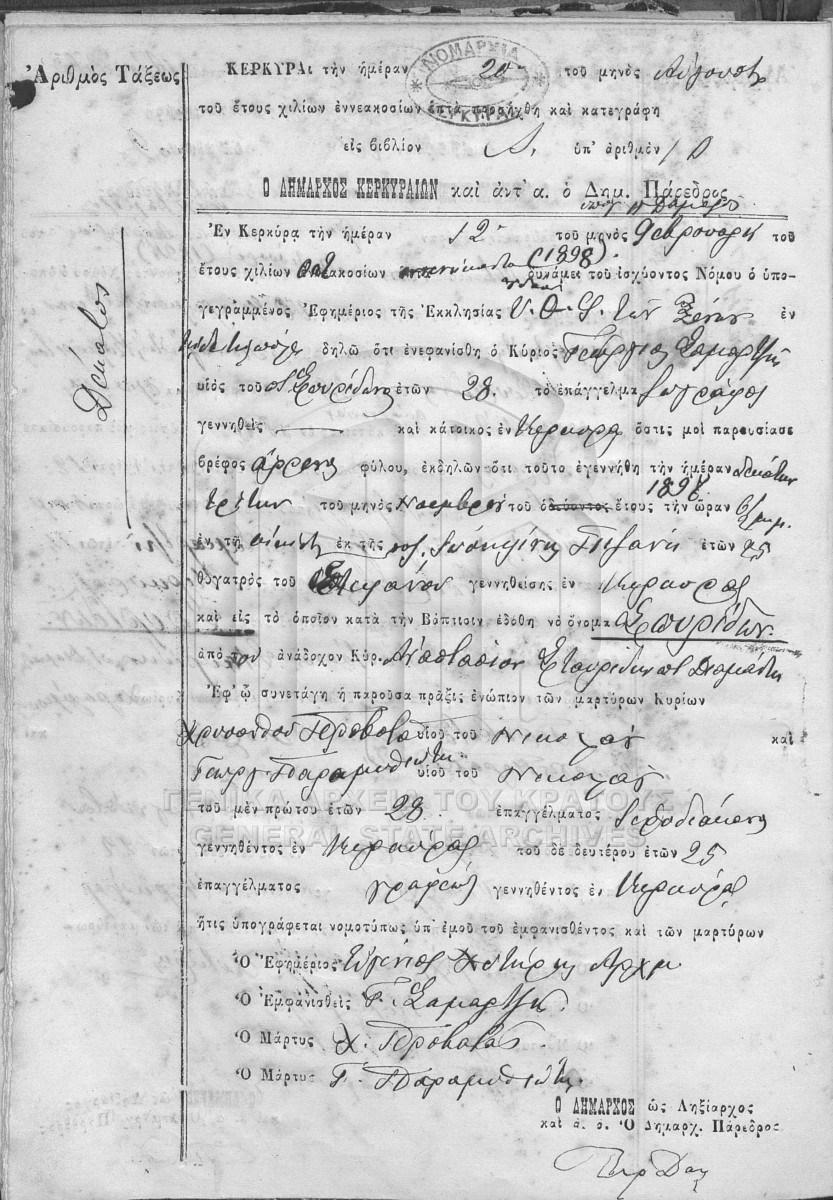 Ἀριθμὸς Τάξεως
Δέκατος
ΝΟΜΑΡΧΙΑ ΚΕΡΚΥΡΑΣ
ΚΕΡΚΥΡΑι τὴν ἡμέραν 20 τοῦ μηνὸς Αὐγούστου
τοῦ ἔτους χιλίων ἐννεακοσίων ἑπτὰ προσήχθη καὶ κατεγράφη
εἰς βιβλίον Α. ὑπ' ἀριθμὸν 10
Ο ΔΗΜΑΡΧΟΣ ΚΕΡΚΥΡΑΙΩΝ καὶ ἀντ' α. ὁ Δημ. Πάρεδρος
Ἐν Κερκύρᾳ τὴν ἡμέραν 12 τοῦ μηνὸς Φεβρουαρίου τοῦ
ἔτους χιλίων ὀκτακοσίων (1898) δυνάμει τοῦ ἰσχύοντος Νόμου ὁ ὑπο-
γεγραμμένος Ἐφημέριος τῆς Ἐκκλησίας Υ. Θ. τῶν Ξένων ἐν
δηλῶ ὅτι ἐνεφανίσθη ὁ Κύριος Γεώργιος Σαμαρτζῆς
υἱὸς τοῦ Σπυρίδωνος ἐτῶν 28. τὸ ἐπάγγελμα ζωγράφος
γεννηθεὶς καὶ κάτοικος ἐν Κερκύρᾳ ὅστις μοὶ παρουσίασε
βρέφος ἄρρενος φύλου, ἐκδηλῶν ὅτι τοῦτο ἐγεννήθη τὴν ἡμέραν δεκάτην
τρίτην τοῦ μηνὸς Νοεμβρίου τοῦ ὁδεύοντος ἔτους τὴν ὥραν
ἐν τῇ οἰκίᾳ ἐκ τῆς ἐτῶν 25
θυγατρὸς τοῦ Στεφάνου γεννηθείσης ἐν Κερκύρᾳ
καὶ εἰς τὸ ὁποῖον κατὰ τὴν Βάπτισιν ἐδόθη νὸ ὄνομα Σπυρίδων.
ἀπὸ τὸν ἀνάδοχον Κύρ. Ἀναστάσιον
Ἐφ' ᾧ συνετάγη ἡ παροῦσα πρᾶξις ἐνώπιον τῶν μαρτύρων Κυρίων
Χρύσανθον Προβατᾶ υἱοῦ τοῦ Νικολάου καὶ
Γεώργ. Παραμυθιώτη υἱοῦ τοῦ Νικολάου
τοῦ μὲν πρώτου ἐτῶν 28 ἐπαγγέλματος Ἱεροδιάκονος
γεννηθέντος ἐν Κερκύρᾳ τοῦ δὲ δευτέρου ἐτῶν 25
ἐπαγγέλματος γραφεὺς γεννηθέντος ἐν Κερκύρᾳ
ἥτις ὑπογράφεται νομοτύπως ὑπ' ἐμοῦ τοῦ ἐμφανισθέντος καὶ τῶν μαρτύρων
Ὁ Ἐφημέριος Εὐγένιος
Ὁ Ἐμφανισθεὶς Γ. Σαμαρτζῆς.
Ὁ Μάρτυς Χ. Προβατᾶς.
Ὁ Μάρτυς Γ. Παραμυθιώτης.
Ο ΔΗΜΑΡΧΟΣ ὡς Ληξίαρχος
καὶ ἀ. α. Ὁ Δημαρχ. Πάρεδρος
ΓΕΝΙΚΑ ΑΡΧΕΙΑ ΤΟΥ ΚΡΑΤΟΥΣ
GENERAL STATE ARCHIVES